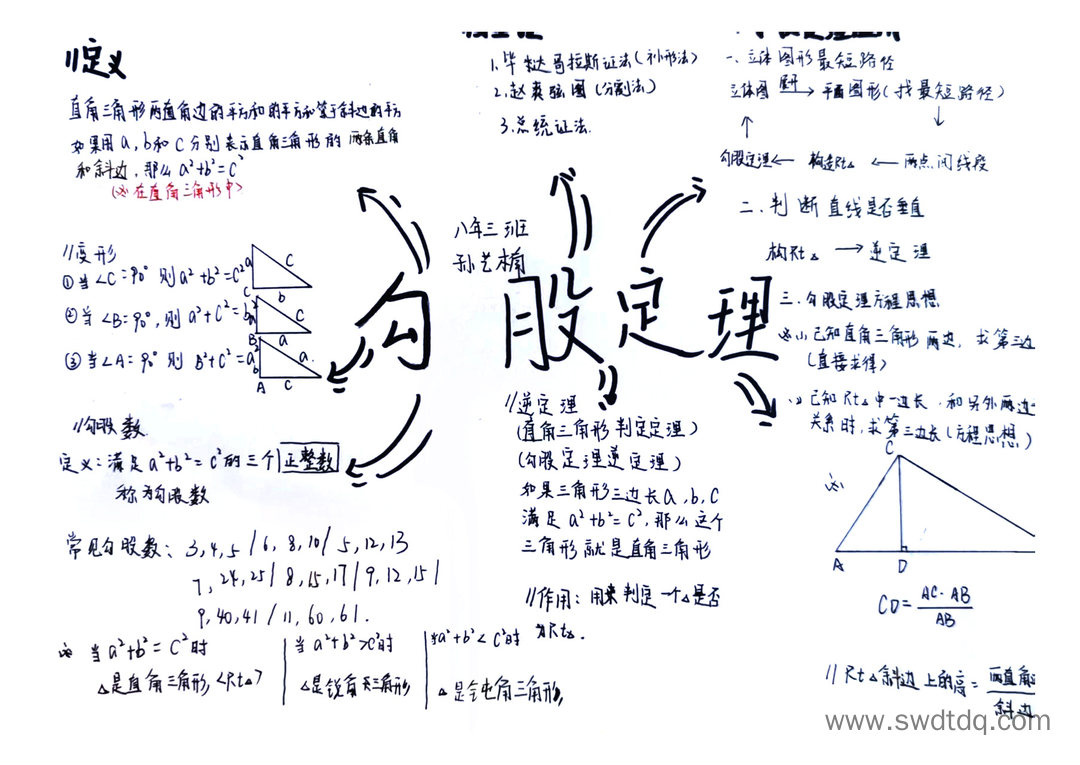 八年三班
勾股定理
//定义
直角三角形两直角边的平方和的平方和等于斜边的平方
如果用a,b和c分别表示直角三角形的两条直角
和斜边,那么a²+b²=c²
(※在直角三角形中)
//变形
①当∠C=90° 则a²+b²=c²
②当∠B=90°,则a²+c²=b²
③当∠A=90° 则 B²+C²=a²
a
c
C
b
a
c
B
a
b
a
A
c
//勾股数
定义:满足a²+b²=c²的三个正整数
称为勾股数
常见勾股数:3,4,5/6,8,10/5,12,13
7,24,25/8,15,17/9,12,15/
9,40,41/11,60,61.
※ 当a²+b²=c²时
△是直角三角形,<Rt△>
当a²+b²>c²时
△是锐角三角形
当a²+b²<c²时
△是钝角三角形,
1.毕达哥拉斯证法(补形法)
2.赵爽弦图(分割法)
3.总统证法.
//逆定理
(直角三角形判定定理)
(勾股定理逆定理)
如果三角形三边长a,b,c
满足a²+b²=c²,那么这个
三角形就是直角三角形
//作用:用来判定一个△是否
为Rt△.
一.立体图形最短路径
立体图 展开→ 平面图形(找最短路径)
↑ ↓
勾股定理← 构造Rt△ ← 两点间线段
二.判断直线是否垂直
构Rt△ → 逆定理
三.勾股定理方程思想
※(1)已知直角三角形两边,求第三边
(直接求得)
(2)已知Rt△中一边长,和另外两边
关系时,求第三边长(方程思想)
C
※
A
D
CD=AC·AB/AB
//Rt△斜边上的高=两直角/斜边
www.swdtdq.com